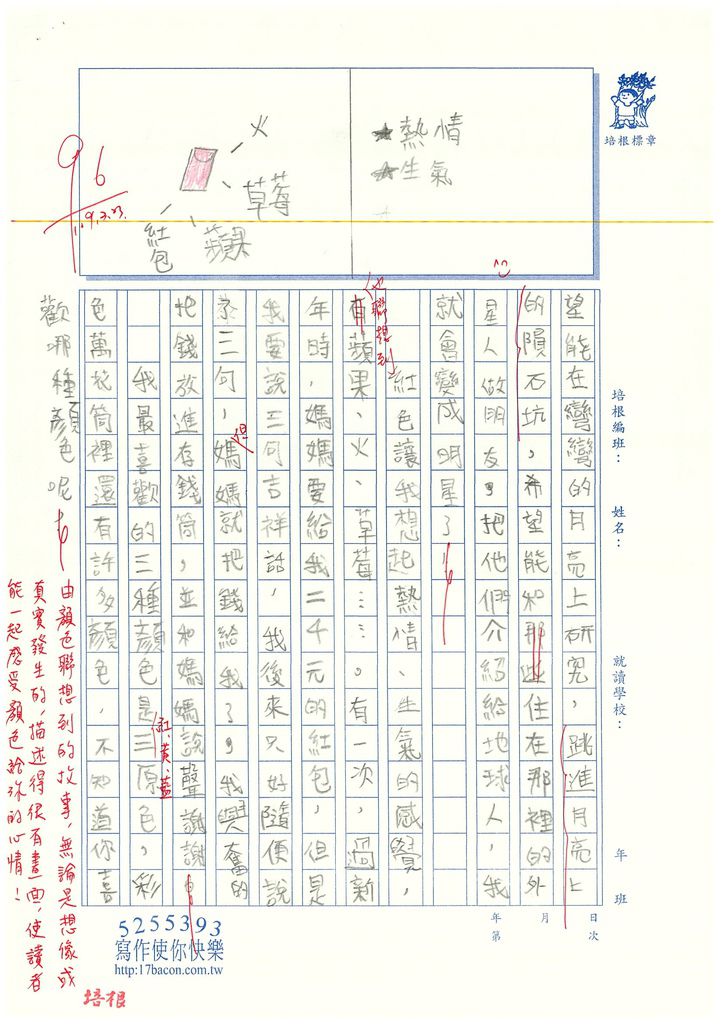 培根標章
熱情
生氣
火
草莓
蘋果
紅包
96
培根編班：
姓名：
就讀學校：
年 班
望能在彎彎的月亮上研究，跳進月亮上
的隕石坑，希望能和那些住在那裡的外
星人做朋友，把他們介紹給地球人，我
就會變成明星了
紅色讓我想起熱情、生氣的感覺，
也聯想到
有蘋果、火、草莓……。有一次，過新
年時，媽媽要給我二千元的紅包，但是
我要說三句吉祥話，我後來只好隨便說
了三句，媽媽就把錢給我了，我興奮的
但
把錢放進存錢筒，並和媽媽說聲謝謝
我最喜歡的三種顏色是三原色，彩
紅、黃、藍
色萬花筒裡還有許多顏色，不知道你喜
歡哪種顏色呢
由顏色聯想到的故事，無論是想像或
真實發生的，描述得很有畫面，使讀者
能一起感受顏色給妳的心情！
年 月 日
第 次
5255393
寫作使你快樂
http:17bacon.com.tw
培根